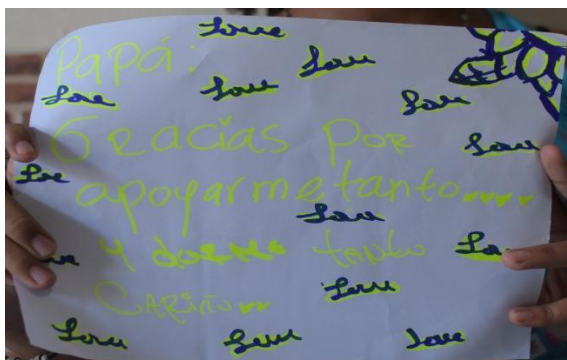 Love
Papá: Love
Love Love Love
Gracias Por Love
Love apoyarme tanto....
Love
y darme tanto Lo
Cariño Love
Love Love Love